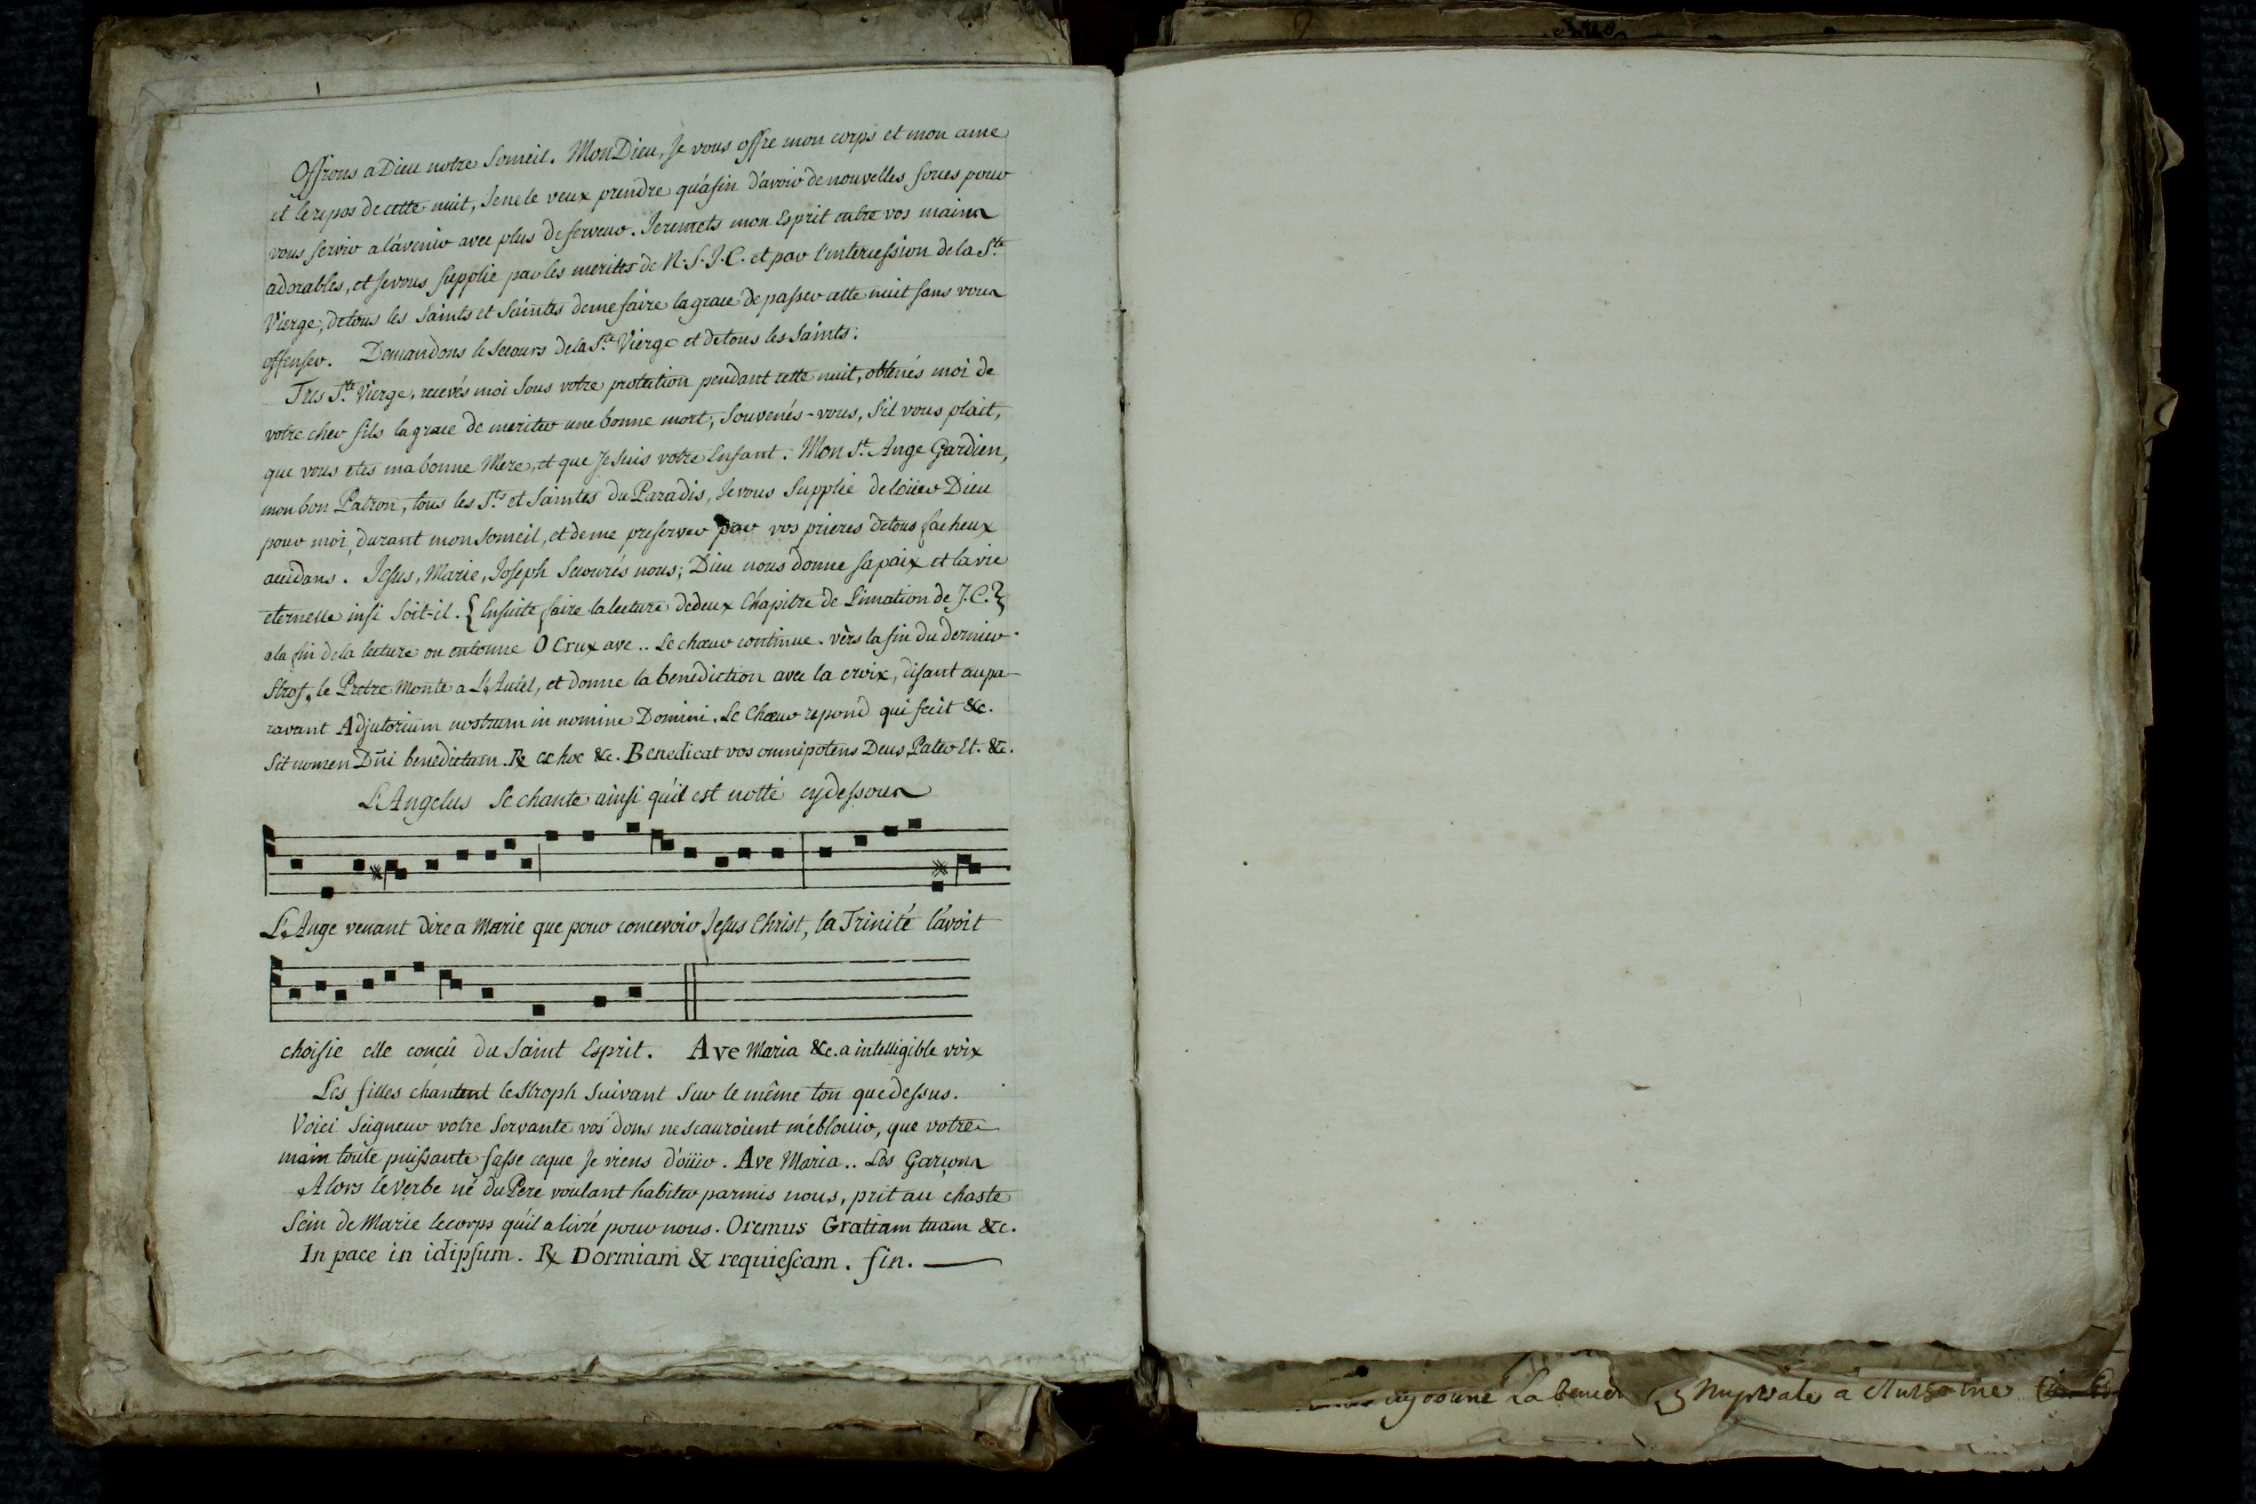 Offrons a Dieu notre Someil. Mon Dieu, Je vous offre mon corps et mon ame
et le repos de cette nuit, Je ne le veux prendre qu'afin d'avoir de nouvelles forces pour
vous servir a l'avenir avec plus de ferveur. Je remets mon Esprit entre vos mains
adorables, et Je vous supplie par les merites de N. S. J. C. et par l'intercession de la Ste
Vierge, de tous les saints et Saintes de me faire la grace de passer cette nuit sans vous
offenser. Demandons le secours de la Ste Vierge et de tous les Saints.
Tres Ste Vierge, recevés moi sous votre protection pendant cette nuit, obtenés moi de
votre cher fils la grace de meriter une bonne mort; Souvenés-vous, s'il vous plait,
que vous etes ma bonne Mere, et que Je suis votre Enfant. Mon St Ange Gardien,
mon bon Patron, tous les Sts et Saintes du Paradis, Je vous Supplie de loüer Dieu
pour moi, durant mon Someil, et de me preserver par vos prieres de tous facheux
accidans. Jesus, Marie, Joseph Secourés nous; Dieu nous donne sa paix et la vie
eternelle insi Soit-il. { Ensuite faire la lecture de deux Chapitre de l'imation de J. C. }
a la fin de la lecture on entonne O Crux ave .. Le chœur continue. vèrs la fin du dernier
Strof, le Pretre Monte a L'Autel, et donne la benediction avec la croix, disant aupa-
ravant Adjutorium nostrum in nomine Domini. Le Chœur repond qui fecit &c.
Sit nomen Dñi benedictum. ℟ ex hoc &c. Benedicat vos omnipotens Deus Pater Et. &c.
L'Angelus Se chante ainsi qu'il est notté cy dessous
L'Ange venant dire a Marie que pour concevoir Jesus Christ, la Trinité l'avoit
choisie elle conçû du Saint Esprit. Ave Maria &c. a intelligible voix
Les filles chantent le Stroph Suivant Sur le même ton que dessus.
Voici Seigneur votre Servante vos dons ne scauroient m'éblouir, que votre
main toute puissante fasse ce que Je viens d'oüir. Ave Maria .. Les Garçons
Alors le Verbe né du Pere voulant habiter parmis nous, prit au chaste
Sein de Marie le corps qu'il a livré pour nous. Oremus Gratiam tuam &c.
In pace in idipsum. ℟ Dormiam & requiescam. fin.